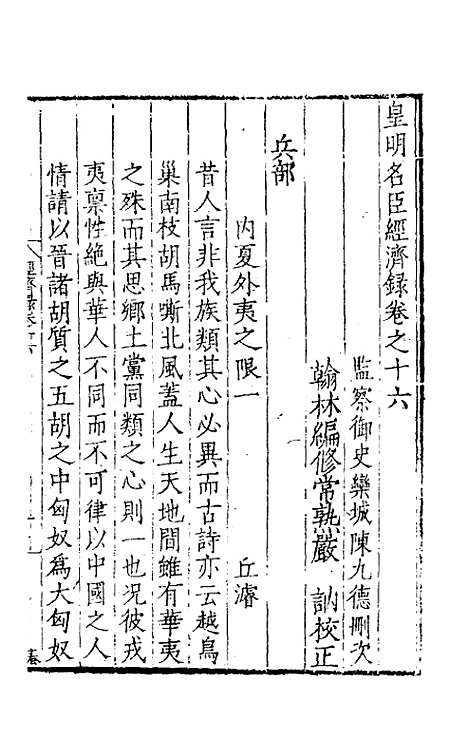 皇明名臣經濟録卷之十六
監察御史欒城陳九德刪次
翰林編修常熟嚴 訥校正
兵部
內夏外夷之限一 丘濬
昔人言非我族類其心必異而古詩亦云越鳥
巢南枝胡馬嘶北風蓋人生天地間雖有華夷
之殊而其思鄉土黨同類之心則一也况彼戎
夷稟性絶與華人不同而不可律以中國之人
情請以晉諸胡質之五胡之中匈奴爲大匈奴